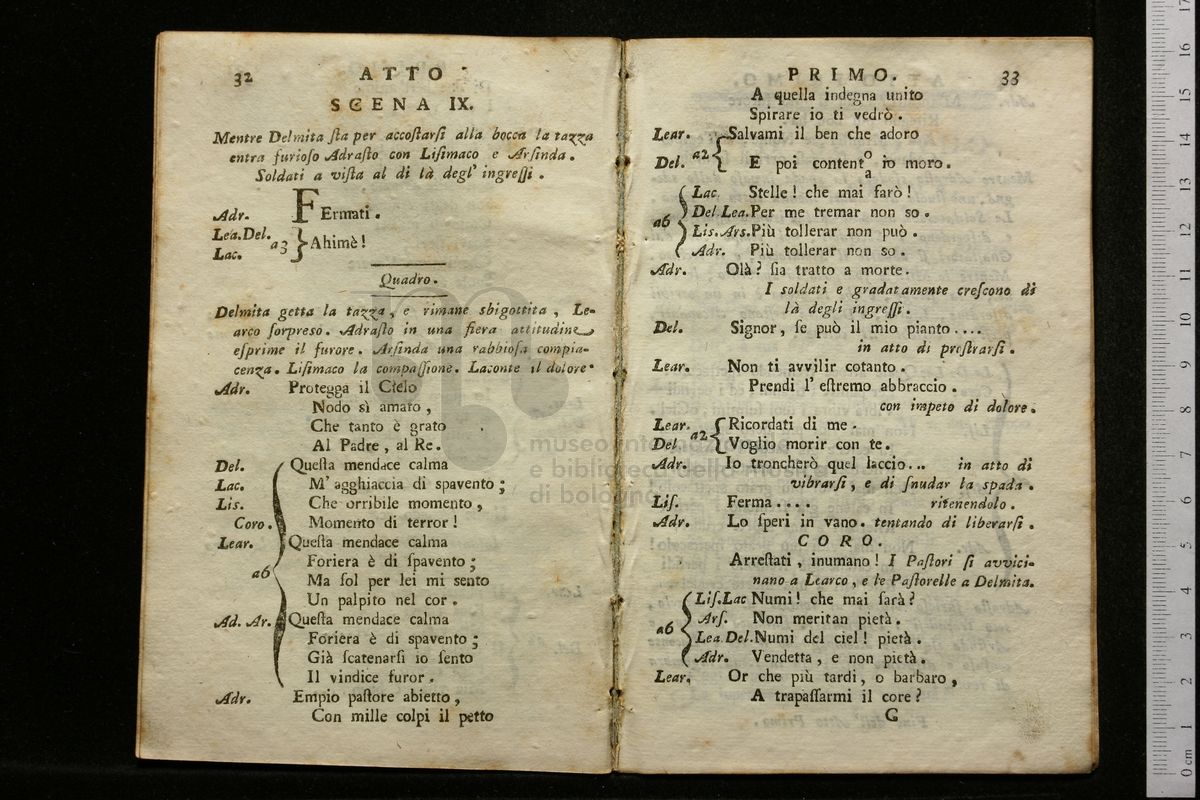 32 ATTO
SCENA IX.
Mentre Delmita ſta per accoſtarſi alla bocca la tazza
entra furioſo Adraſto con Liſimaco e Arſinda.
Soldati a viſta al di là degl' ingreſſi.
Adr. FErmati.
Lea.Del. a3 Ahimè!
Lac.
Quadro.
Delmita getta la tazza, e rimane sbigottita, Le-
arco ſorpreso. Adraſto in una fiera attitudine
eſprime il furore. Arſinda una rabbioſa compia-
cenza. Liſimaco la compaſſione. Laconte il dolore.
Adr. Protegga il Cielo
Nodo sì amato,
Che tanto è grato
Al Padre, al Re.
Del. Queſta mendace calma
Lac. M' agghiaccia di spavento;
Lis. Che orribile momento,
Coro. Momento di terror!
Lear. Queſta mendace calma
Foriera è di ſpavento;
a6 Ma ſol per lei mi sento
Un palpito nel cor.
Ad. Ar. Queſta mendace calma
Foriera è di ſpavento;
Già ſcatenarſi io ſento
Il vindice furor.
Adr. Empio paſtore abietto,
Con mille colpi il petto
PRIMO. 33
A quella indegna unito
Spirare io ti vedrò.
Lear. Salvami il ben che adoro
Del. a2 E poi content o/a io moro.
Lac. Stelle! che mai farò!
Del Lea. Per me tremar non so.
a6 Lis. Ars. Più tollerar non può.
Adr. Più tollerar non so.
Adr. Olà? ſia tratto a morte.
I soldati e gradatamente creſcono di
là degli ingreſſi.
Del. Signor, ſe può il mio pianto....
in atto di proſtrarſi.
Lear. Non ti avvilir cotanto.
Prendi l' eſtremo abbraccio.
con impeto di dolore.
Lear. a2 Ricordati di me.
Del Voglio morir con te.
Adr. Io troncherò quel laccio... in atto di
vibrarſi, e di ſnudar la spada.
Liſ. Ferma.... ritenendolo.
Adr. Lo ſperi in vano. tentando di liberarſi.
CORO.
Arreſtati, inumano! I Paſtori ſi avvici-
nano a Learco, e le Paſtorelle a Delmita.
Liſ.Lac Numi! che mai ſarà?
a6 Arſ. Non meritan pietà.
Lea Del. Numi del ciel! pietà.
Adr. Vendetta, e non pietà.
Lear. Or che più tardi, o barbaro,
A trapaſſarmi il core?
G
museo internaz
e biblioteca della musica
di bologna
0 cm 1 2 3 4 5 6 7 8 9 10 11 12 13 14 15 16 17